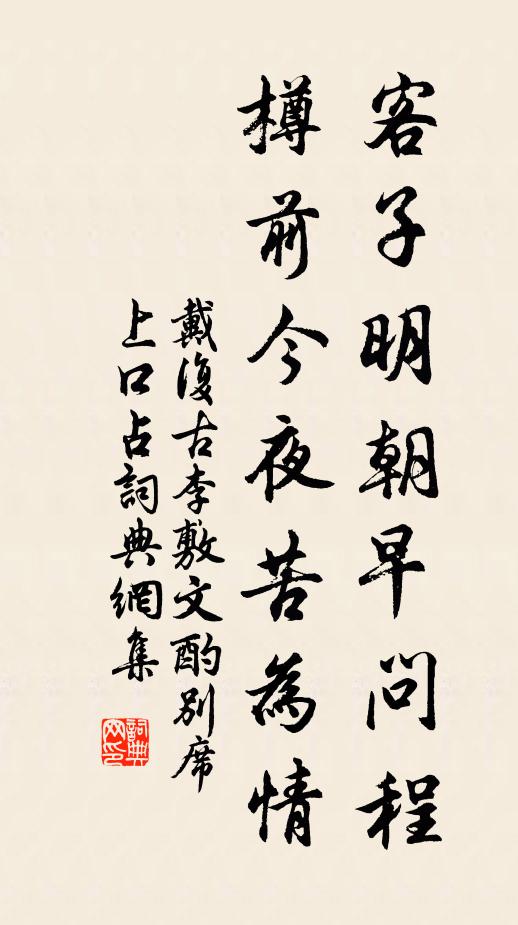 客子明朝早問程
樽前今夜苦為情
戴復古李敷文酌別席
上口占詞典網集
詞典
网印